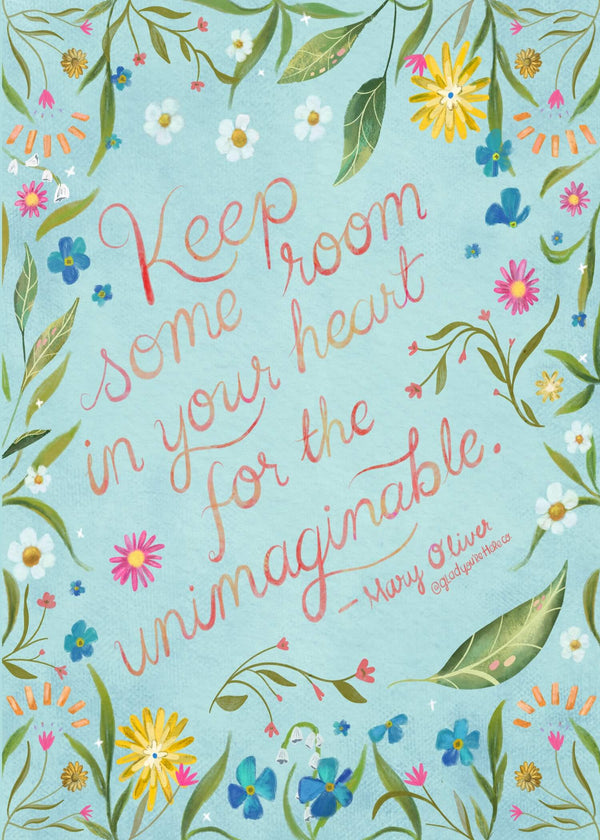 Keep
some room
in your heart
for the
unimaginable.
- Mary Oliver
@gladyoureHere.co